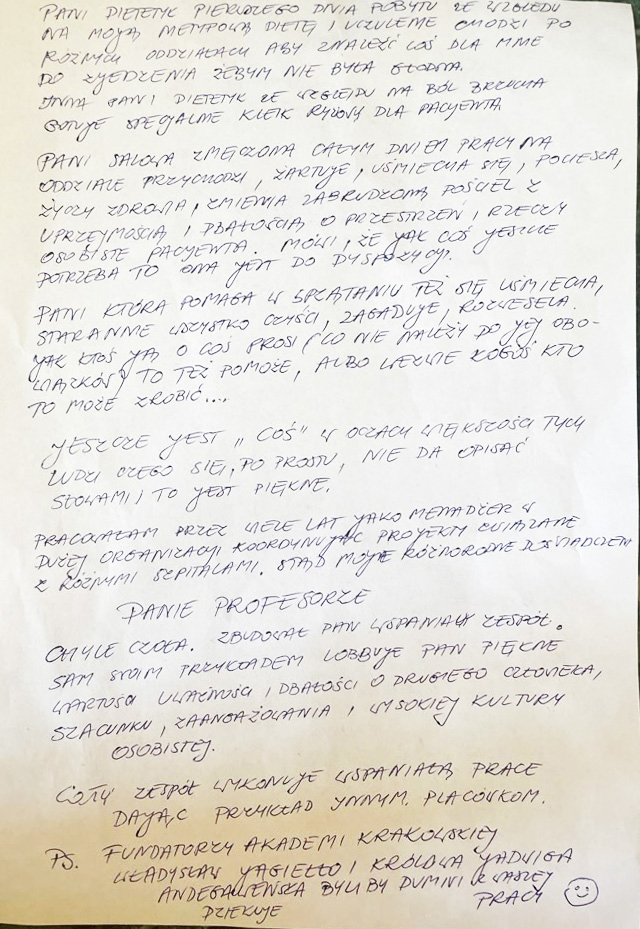 PANI DIETETYK PIERWSZEGO DNIA POBYTU ZE WZGLĘDU
NA MOJĄ NIETYPOWĄ DIETĘ I UCZULENIE CHODZI PO
RÓŻNYCH ODDZIAŁACH ABY ZNALEŹĆ COŚ DLA MNIE
DO ZJEDZENIA ŻEBYM NIE BYŁA GŁODNA.
INNA PANI DIETETYK ZE WZGLĘDU NA BÓL BRZUCHA
GOTUJE SPECJALNIE KLEIK RYŻOWY DLA PACJENTA
PANI SALOWA ZMĘCZONA CAŁYM DNIEM PRACY NA
ODDZIALE PRZYCHODZI, ŻARTUJE, UŚMIECHA SIĘ, POCIESZA,
ŻYCZY ZDROWIA, ZMIENIA ZABRUDZONĄ POŚCIEL Z
UPRZEJMOŚCIĄ I DBAŁOŚCIĄ O PRZESTRZEŃ I RZECZY
OSOBISTE PACJENTA. MÓWI, ŻE JAK COŚ JESZCZE
POTRZEBA TO ONA JEST DO DYSPOZYCJI.
PANI KTÓRA POMAGA W SPRZĄTANIU TEŻ SIĘ UŚMIECHA,
STARANNIE WSZYSTKO CZYŚCI, ZAGADUJE, ROZWESELA.
JAK KTOŚ JĄ O COŚ PROSI (CO NIE NALEŻY DO JEJ OBO-
WIĄZKÓW) TO TEŻ POMOŻE, ALBO WEZWIE KOGOŚ KTO
TO MOŻE ZROBIĆ....
JESZCZE JEST „COŚ" W OCZACH WIĘKSZOŚCI TYCH
LUDZI CZEGO SIĘ, PO PROSTU, NIE DA OPISAĆ
SŁOWAMI I TO JEST PIĘKNE.
PRACOWAŁAM PRZEZ WIELE LAT JAKO MENADŻER W
DUŻEJ ORGANIZACJI KOORDYNUJĄC PROJEKTY ZWIĄZANE
Z RÓŻNYMI SZPITALAMI. STĄD MOJE RÓŻNORODNE DOŚWIADCZEN
PANIE PROFESORZE
CHYLĘ CZOŁA. ZBUDOWAŁ PAN WSPANIAŁY ZESPÓŁ.
SAM SWOIM PRZYKŁADEM LOBBUJE PAN PIĘKNE
WARTOŚCI UWAŻNOŚCI I DBAŁOŚCI O DRUGIEGO CZŁOWIEKA,
SZACUNKU, ZAANGAŻOWANIA I WYSOKIEJ KULTURY
OSOBISTEJ.
CAŁY ZESPÓŁ WYKONUJE WSPANIAŁĄ PRACE
DAJĄC PRZYKŁAD INNYM PLACÓWKOM.
PS. FUNDATORZY AKADEMI KRAKOWSKIEJ
WŁADYSŁAW JAGIEŁŁO I KRÓLOWA JADWIGA
ANDEGAWEŃSKA BYLIBY DUMNI Z WASZEJ
PRACY
DZIĘKUJE